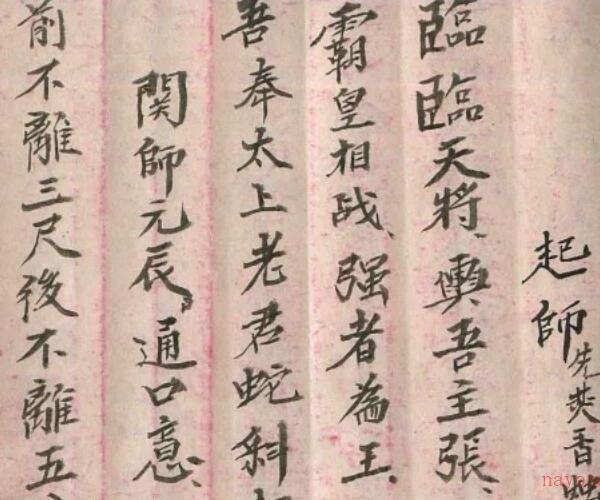 起師先焚香
臨臨天將、與吾主張、
霸皇相战、强者為王、
吾奉太上老君蛇斜
関師元辰、通口意、
前不離三尺後不離五
naya